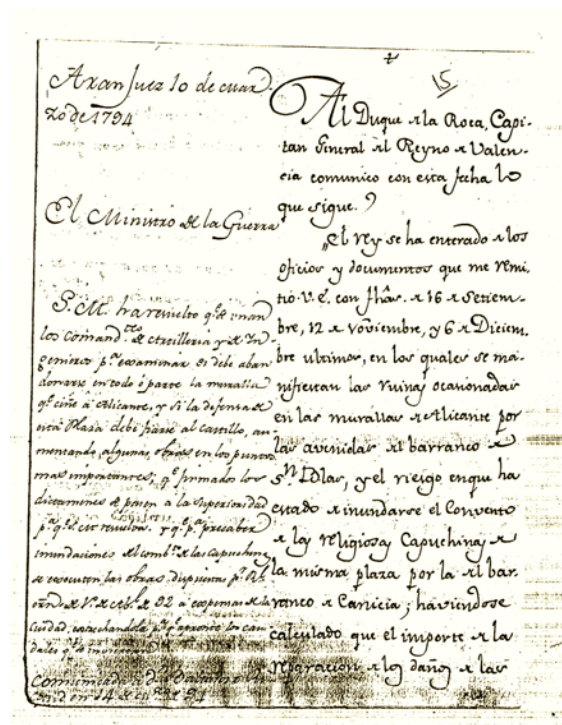 15
Aranjuez 10 de Mar-
zo de 1794
El Ministro de la Guerra
S. M. ha resuelto q.e se unan
los Comand.tes de Artilleria y de In-
genieros p.a examinar si debe aban
donarse en todo ó parte la muralla
q.e ciñe á Alicante, y si la defensa de
esta Plaza debe fiarse al Castillo, au-
mentando algunas obras en los puntos
mas importantes; q.e firmados los
dictamenes se pasen a la Superioridad
p.a q.e se resuelva. y q.e p.a precaber
inundaciones del comb.to de las Capuchin.s
se executen las obras dispuestas p.r
de 92 a expensas de la
Ciudad,
dales q.e
Comunicada
en 14 de 94
Al Duque de la Roca, Capi-
tan General del Reyno de Valen-
cia comunico con esta fecha lo
que sigue.
"El rey se ha enterado de los
oficios y documentos que me remi-
tió V.E. con fhas. de 16 de Setiem-
bre, 12 de Noviembre, y 6 de Diciem-
bre ultimos, en los quales se ma-
nifiestan las ruinas ocasionadas
en las murallas de Alicante por
las avenidas del barranco de
S.n Blas, y el riesgo en que ha
estado de inundarse el Convento
de las religiosas Capuchinas de
la misma plaza por la del bar-
ranco de Canicia; haviendose
calculado que el importe de la
reparacion de los daños de las